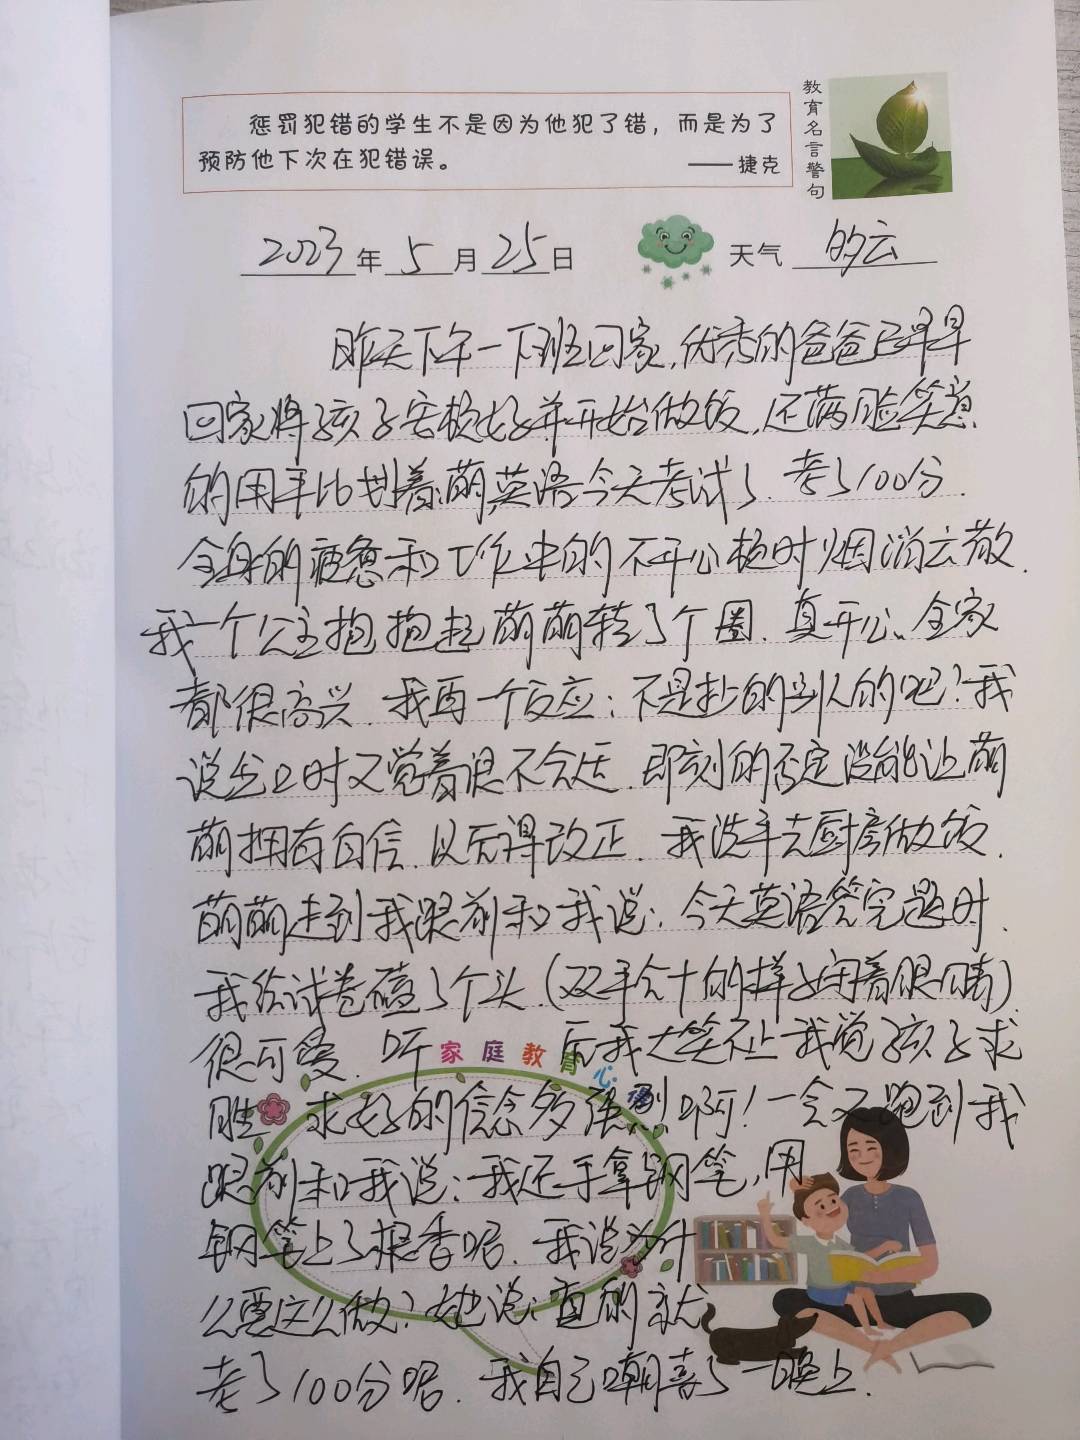 惩罚犯错的学生不是因为他犯了错，而是为了
预防他下次在犯错误。
——捷克
教育名言警句
2023年5月25日
天气 的云
昨天下午一下班回家,优秀的爸爸已早早
回家将孩子安检好并开始做饭,还满脸笑意
的用手比划着:萌英语今天考试了.考了100分.
全身的疲惫和工作中的不开心顿时烟消云散.
我一个公主抱抱起萌萌转了个圈.真开心、全家
都很高兴.我再一个反应:不是抄的别人的吧?我
说出口时又觉着很不合适.即刻的否定没能让萌
萌拥有自信.以后得改正.我洗手去厨房做饭.
萌萌走到我跟前和我说:今天英语答完题时.
我给试卷磕了个头.(双手合十的样子闭着眼睛).
很可爱.听后我大笑不止我觉孩子求
胜 求好的信念多强烈啊!一会又跑到我
跟前和我说:我还手拿钢笔,用
钢笔上了根香呢.我说为什
么要这么做?她说:真的就
考了100分呢.我自己嘲喜了一晚上.
家庭教育心得